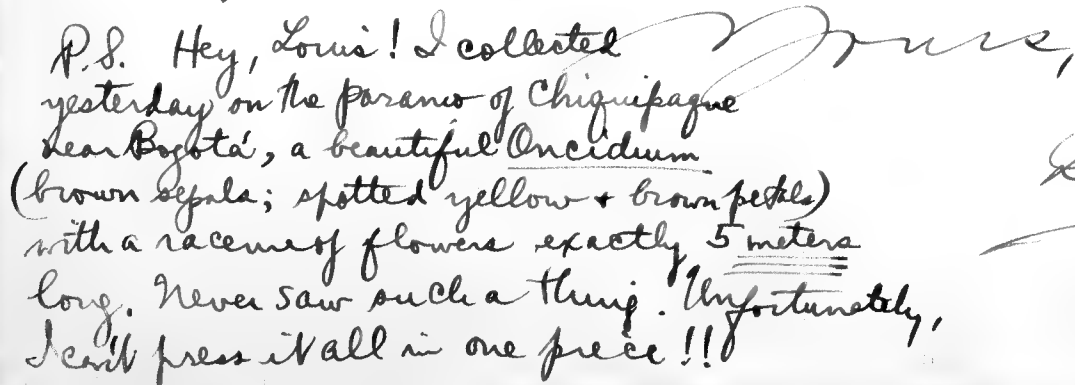 Yours,
P.S. Hey, Louis! I collected
yesterday on the paramo of Chiquipaque
near Bogotá, a beautiful Oncidium
(brown sepals; spotted yellow + brown petals)
with a raceme of flowers exactly 5 meters
long. Never saw such a thing. Unfortunately,
I can't press it all in one piece!!